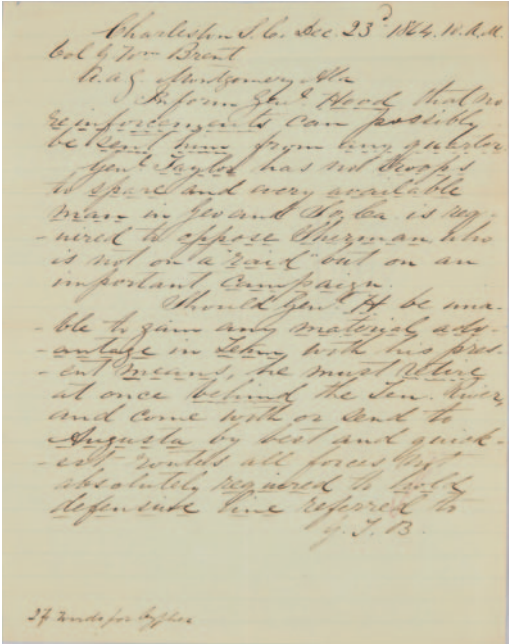 Charleston S.C. Dec. 23d 1864. 10. A.M.
Col G Wm Brent
A.A.G. Montgomery Ala
Inform Genl. Hood that no
reinforcements can possibly
be sent him from any quarter.
Genl. Taylor has not troops
to spare and every available
man in Geo and So. Ca. is req-
-uired to oppose Sherman, who
is not on a "raid" but on an
important campaign.
Should Genl. H be una-
-ble to gain any material adv-
-antage in Tenn. with his pres-
-ent means, he must retire
at once behind the Ten. River,
and come with or send to
Augusta by best and quick-
-est routes all forces not
absolutely required to hold
defensive line referred to
G. T. B.
27 words for Cypher